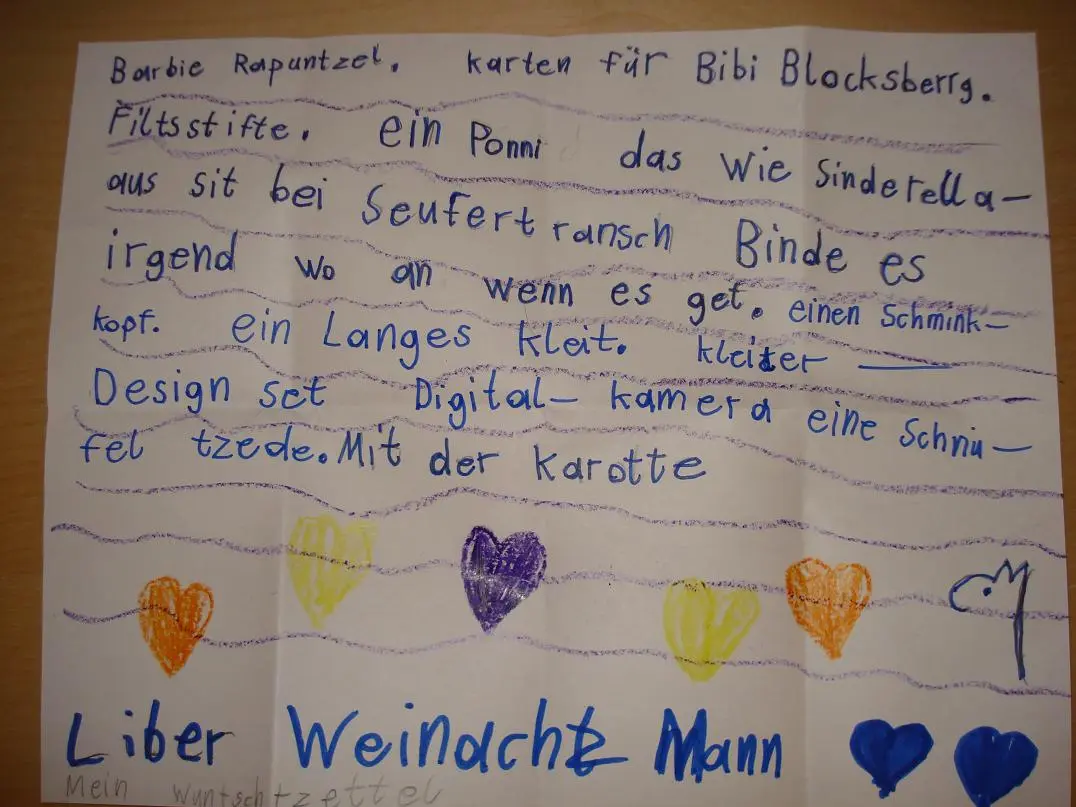 Barbie Rapuntzel. karten für Bibi Blocksberrg.
Filtsstifte. ein Ponni das wie Sinderella-
aus sit bei Seufert ransch Binde es
irgend wo an wenn es get. einen Schmink-
kopf. ein Langes kleit. kleiter
Design set Digital- kamera eine Schnu-
fel tzede. Mit der karotte
Liber Weinachtz Mann
Mein Wuntschtzettel